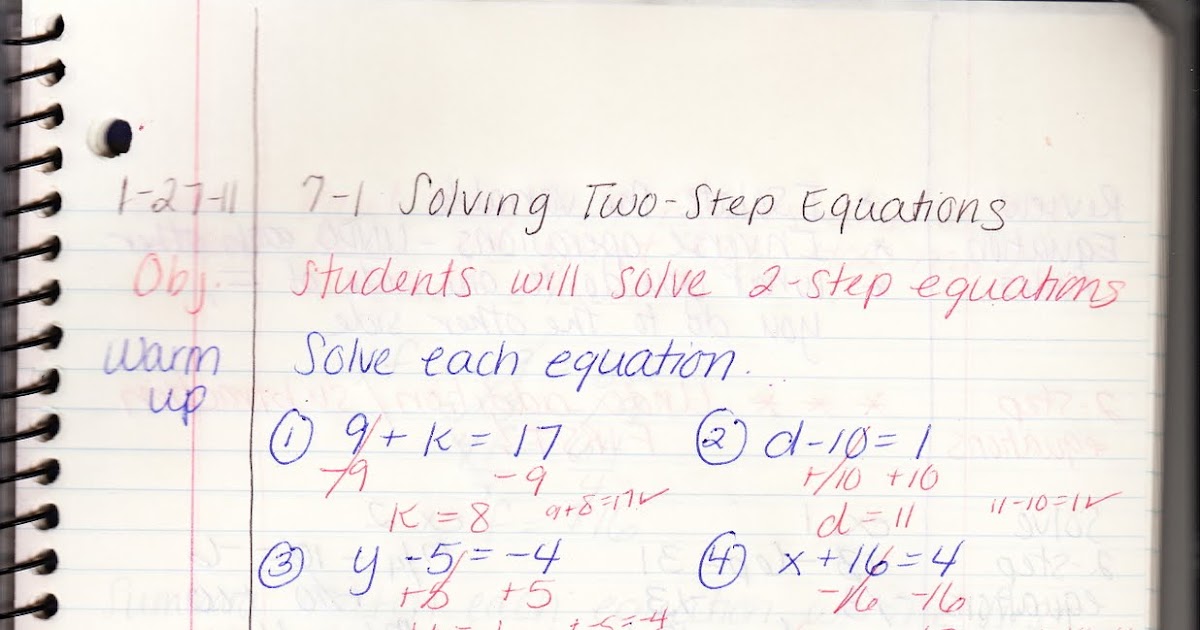 1-27-11 7-1 Solving Two-Step Equations
Obj. Students will solve 2-step equations
Warm up Solve each equation.
① 9 + k = 17 ② d - 10 = 1
-9 -9 +10 +10
k = 8 9+8=17✓ d = 11 11-10=1✓
③ y - 5 = -4 ④ x + 16 = 4
+5 +5 -16 -16